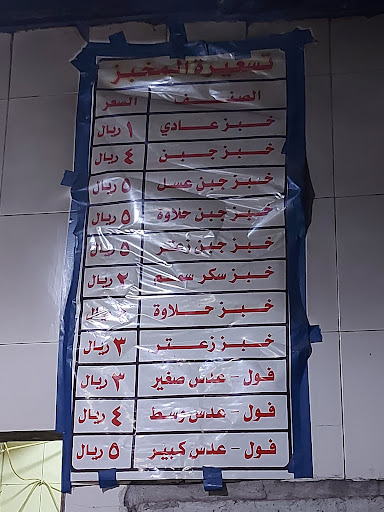 تسعيرة المخبز
الصنف السعر
خبز عادي ١ ريال
خبز جبن ٤ ريال
خبز جبن عسل ٥ ريال
خبز جبن حلاوة ٥ ريال
خبز جبن زعتر ٥ ريال
خبز سكر سمسم ٢ ريال
خبز حلاوة ريال
خبز زعتر ٣ ريال
فول - عدس صغير ٣ ريال
فول - عدس وسط ٤ ريال
فول - عدس كبير ٥ ريال